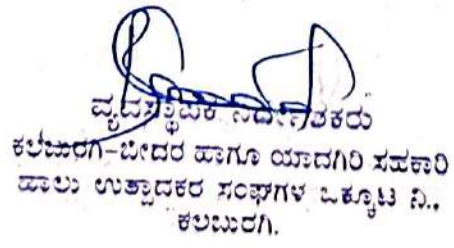 ವ್ಯವಸ್ಥಾಪಕ ನಿರ್ದೇಶಕರು
ಕಲಬುರಗಿ-ಬೀದರ ಹಾಗೂ ಯಾದಗಿರಿ ಸಹಕಾರಿ
ಹಾಲು ಉತ್ಪಾದಕರ ಸಂಘಗಳ ಒಕ್ಕೂಟ ನಿ.,
ಕಲಬುರಗಿ.